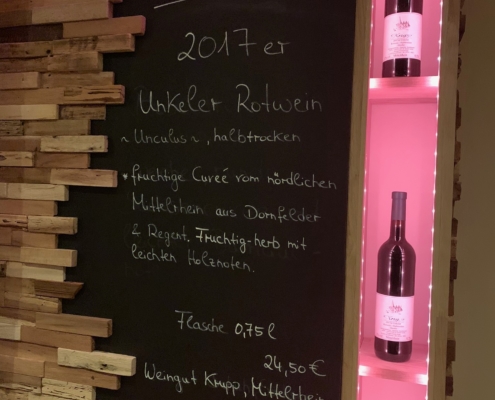 2017er
Unkeler Rotwein
~ Unculus ~, halbtrocken
* fruchtige Cureé vom nördlichen
Mittelrhein aus Dornfelder
& Regent. Fruchtig-herb mit
leichten Holznoten.
Flasche 0,75l
24,50€
Weingut Krupp, Mittelrhein